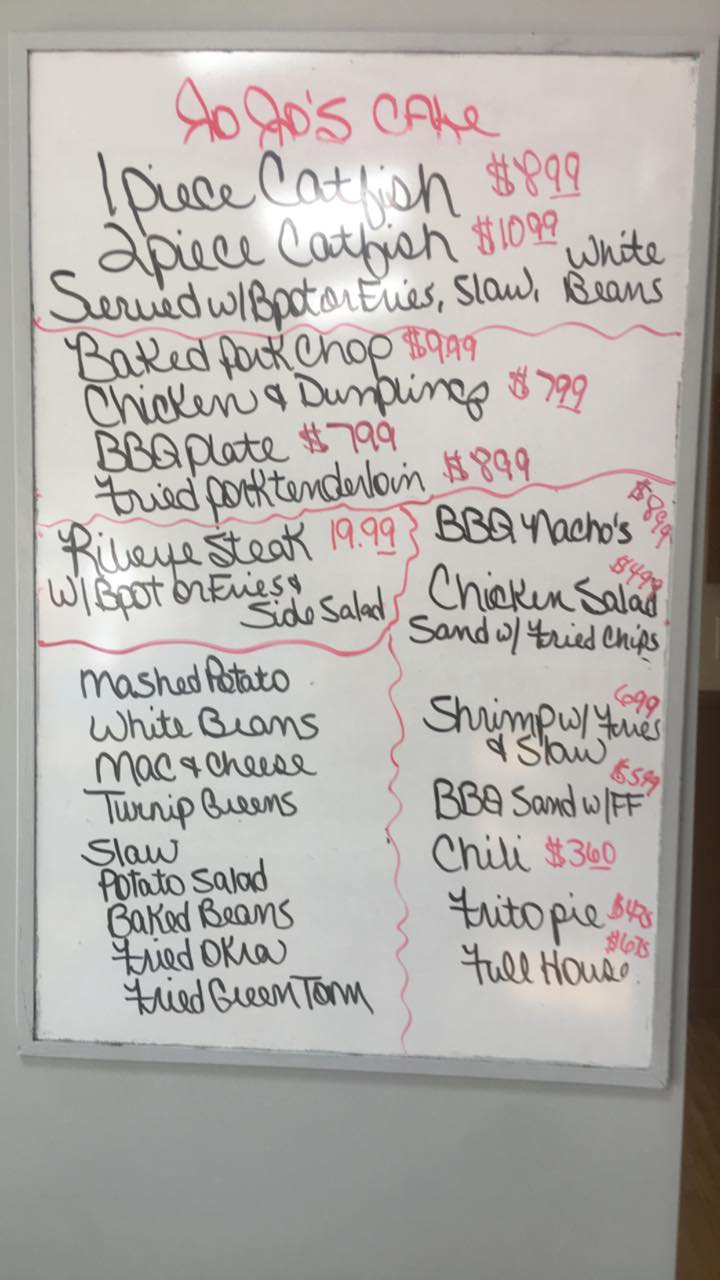 JoJo's CAfe
1 piece Catfish $8 99
2 piece Catfish $10 99
Served w/ Bpot or Fries, Slaw, White Beans
Baked Pork Chop $9.99
Chicken & Dumplings $7 99
BBQ Plate $7 99
Fried Pork tenderloin $8 99
Ribeye Steak 19.99
w/ Bpot or Fries &
Side Salad
Mashed Potato
White Beans
Mac & Cheese
Turnip Greens
Slaw
Potato Salad
Baked Beans
Fried OKra
Fried Green Tom
BBQ Nacho's $8 99
Chicken Salad $4 99
Sand w/ Fried Chips
Shrimp w/ Fries 6 99
& Slaw
BBQ Sand w/ FF $5 99
Chili $3 60
Frito pie $4 75
Full House $6 75